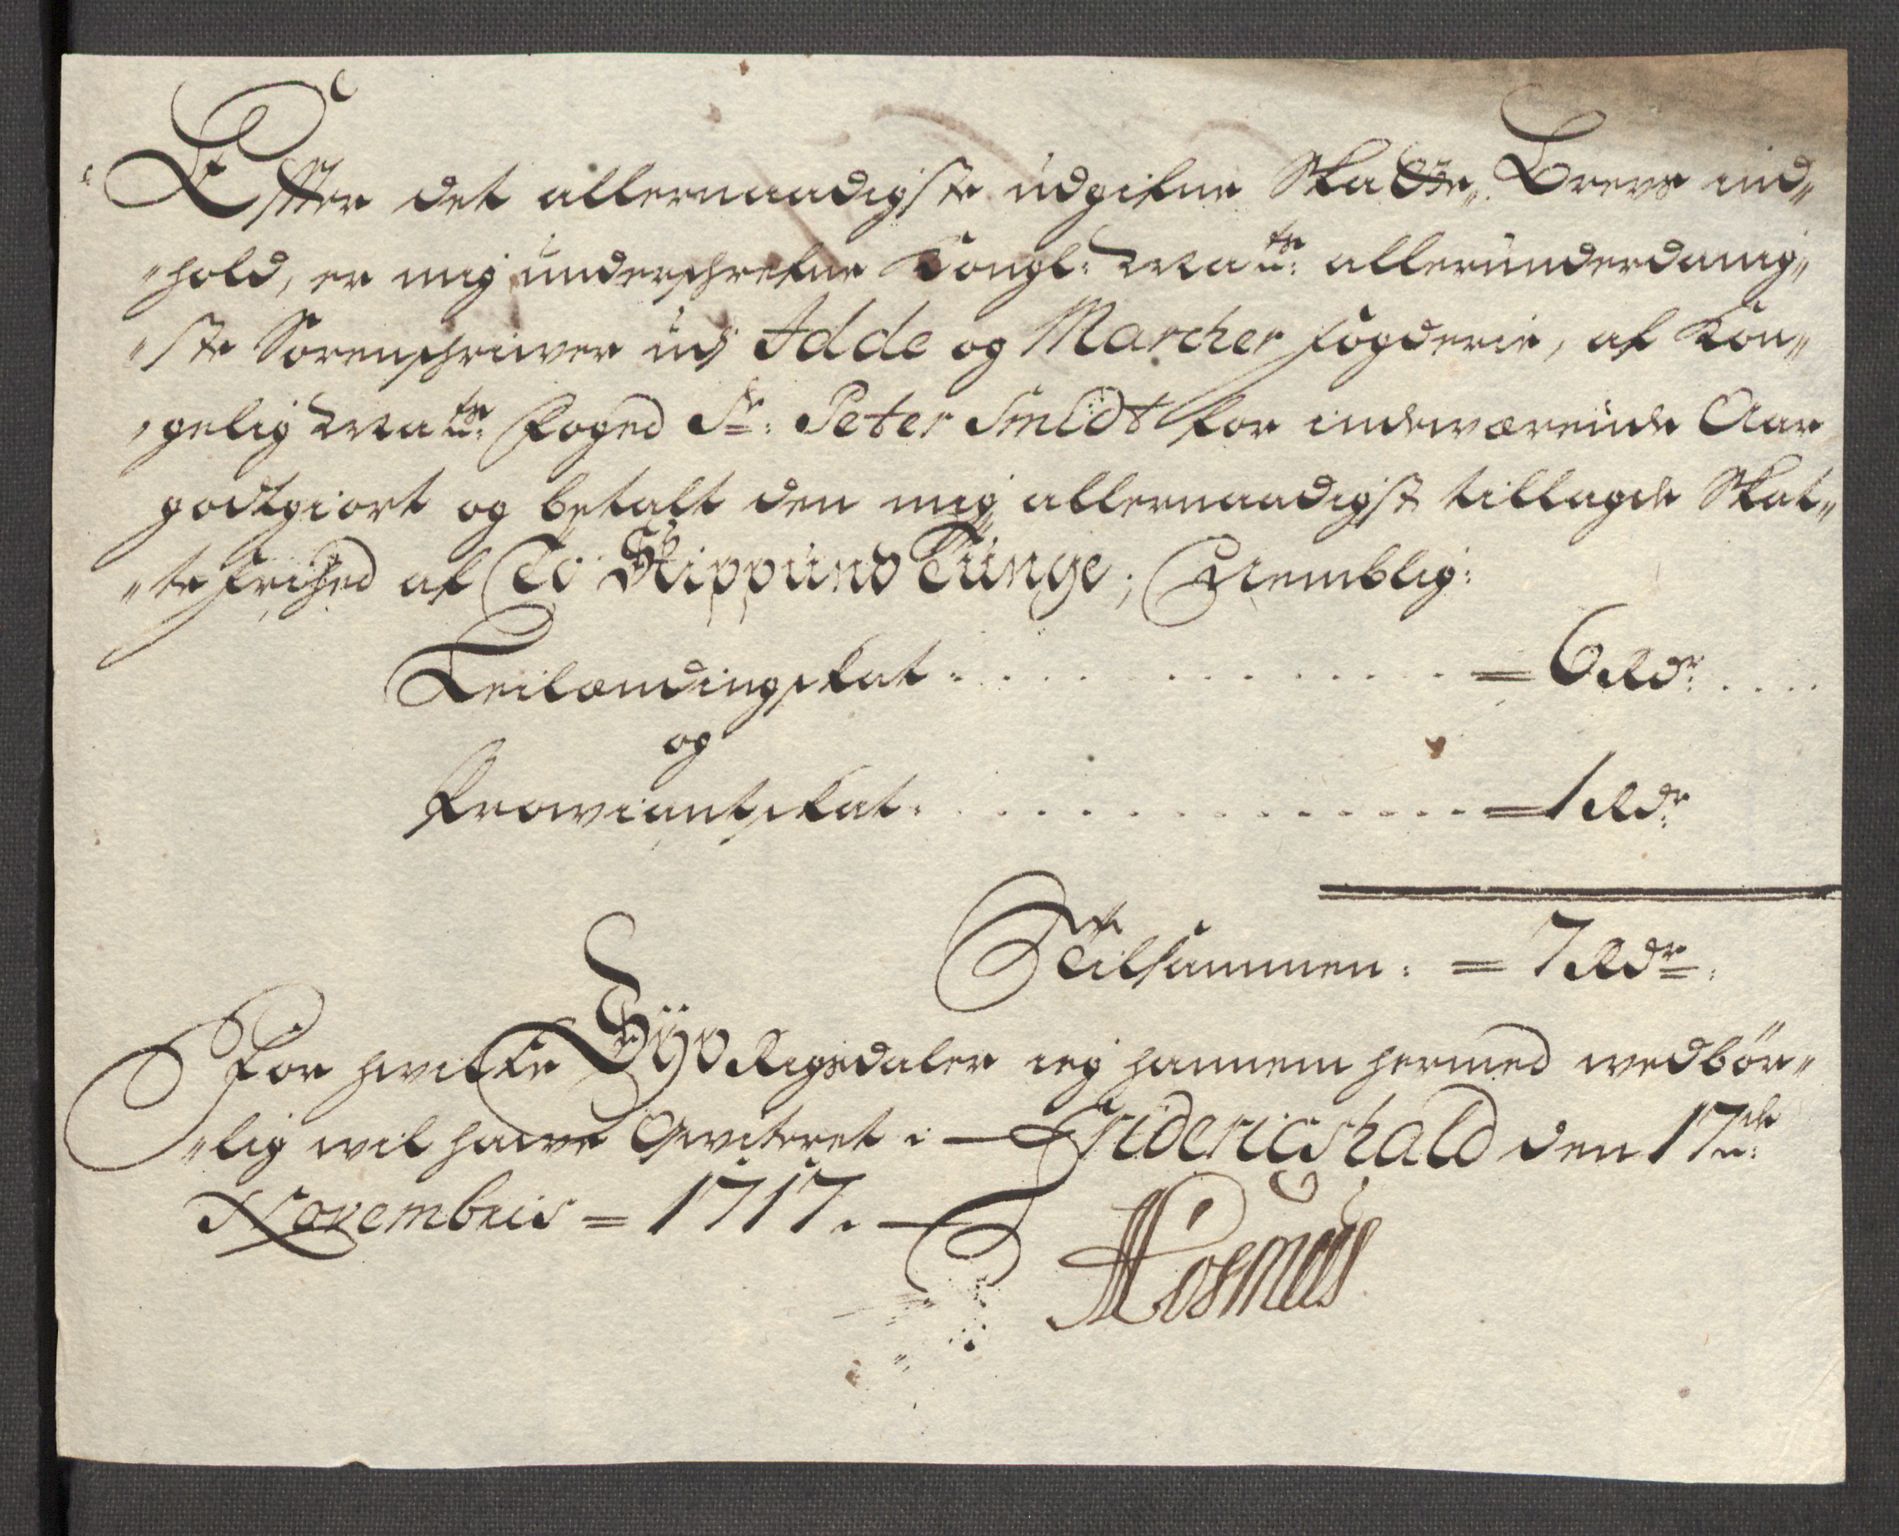 Effter det allernaadigste udgifne Skatte„ Brevs ind„
„hold, er mig underschrefne Kongl: Ma.tz allerunderdanig„
„ste Sorenschriwer udj Idde og Marcher fogderie, af Kon„
„gelig Ma.tz foged Sr: Peter Smidt for indewærende Aar
godtgiort og betalt den mig allernaadigst tillagde Skat„
„te frihed af To Skippund Tunge; Nemblig:
Leilændingskat . . . . . . . . . . . = 6 Rdr: . . . .
og
Prowiantskat: . . . . . . . . . . . = 1 Rdr
Tilsammen: = 7 Rdr:
For hvilke Syv Rigsdaler ieg hannem hermed wedbør„
„lig wil hawe Qwiteret i Fridericshald den 17de:
Novembris = 1717.